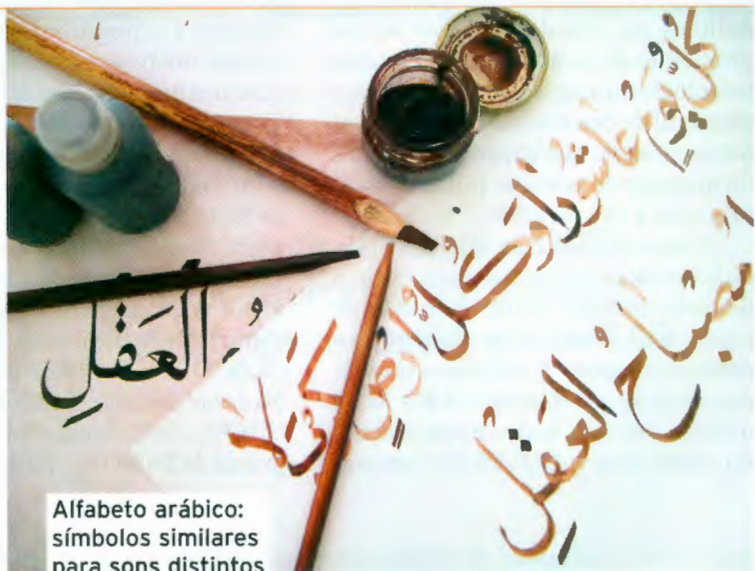 كُلُّ يَومٍ عاشُورا وَكُلُّ اَرضٍ كَربَلا
مصباحُ العَقلِ
العَقلِ
Alfabeto arábico:
símbolos similares
para sons distintos